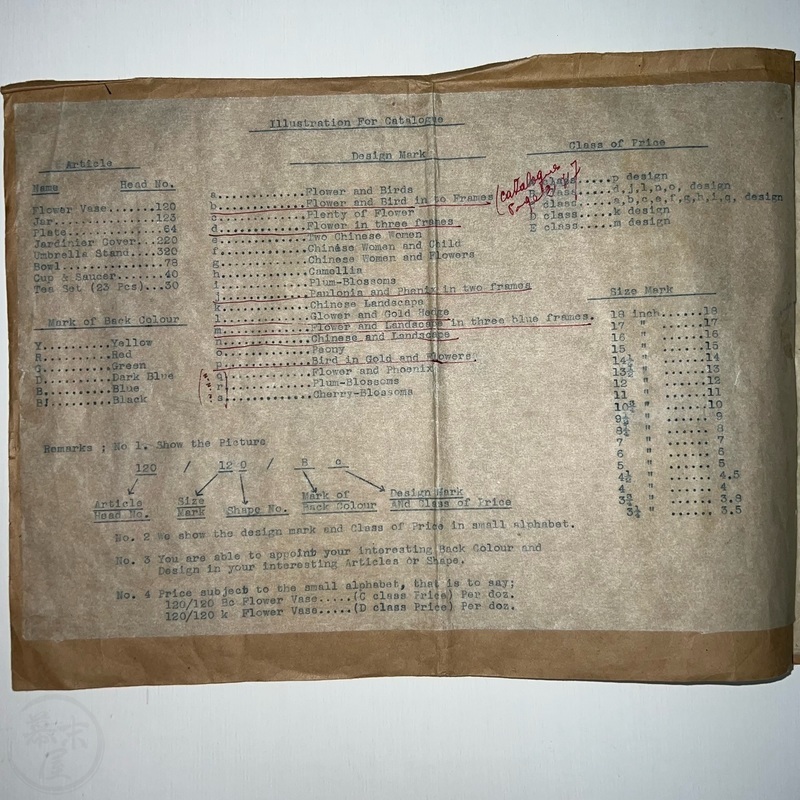 Illustration For Catalogue
Article
Name Head No.
Flower Vase.....120
Jar.............123
Plate............64
Jardinier Cover..220
Umbrella Stand...320
Bowl.............78
Cup & Saucer.....40
Tea Set (23 Pcs)...30
Mark of Back Colour
Y..........Yellow
R..........Red
G..........Green
D..........Dark Blue
B..........Blue
Bl.........Black
Design Mark
a............Flower and Birds
b............Flower and Bird in to Frames
c............Plenty of Flower
d............Flower in three frames
e............Two Chinese Women
f............Chinese Women and Child
g............Chinese Women and Flowers
h............Camellia
i............Plum-Blossoms
j............Paulonia and Phenix in two frames
k............Chinese Landscape
l............Glower and Gold Hedge
m............Flower and Landscape in three blue frames.
n............Chinese and Landscape
o............Peony
p............Bird in Gold and Flowers.
q............Flower and Phoenix
r............Plum-Blossoms
s............Cherry-Blossoms
Class of Price
(catalog
p design
d,j,l,n,o, design
class....a,b,c,e,f,g,h,i,q, design
D class.....k design
E class.....m design
Size Mark
18 inch.....18
17 " ......17
16 " ......16
15 " ......15
14½ " ......14
13½ " ......13
12 " ......12
11 " ......11
10¾ " ......10
9½ " ......9
8½ " ......8
7 " ......7
6 " ......6
5 " ......5
4½ " ......4.5
4 " ......4
3¾ " ......3.8
3¼ " ......3.5
Remarks ; No 1. Show the Picture
120 / 12 0 / B c
Article Head No.
Size Mark
Shape No.
Mark of Back Colour
Design Mark and Class of Price
No. 2 We show the design mark and Class of Price in small alphabet.
No. 3 You are able to appoint your interesting Back Colour and
Design in your interesting Articles or Shape.
No. 4 Price subject to the small alphabet, that is to say;
120/120 Bc Flower Vase.....(C class Price) Per doz.
120/120 k Flower Vase.....(D class Price) Per doz.
幕末屋